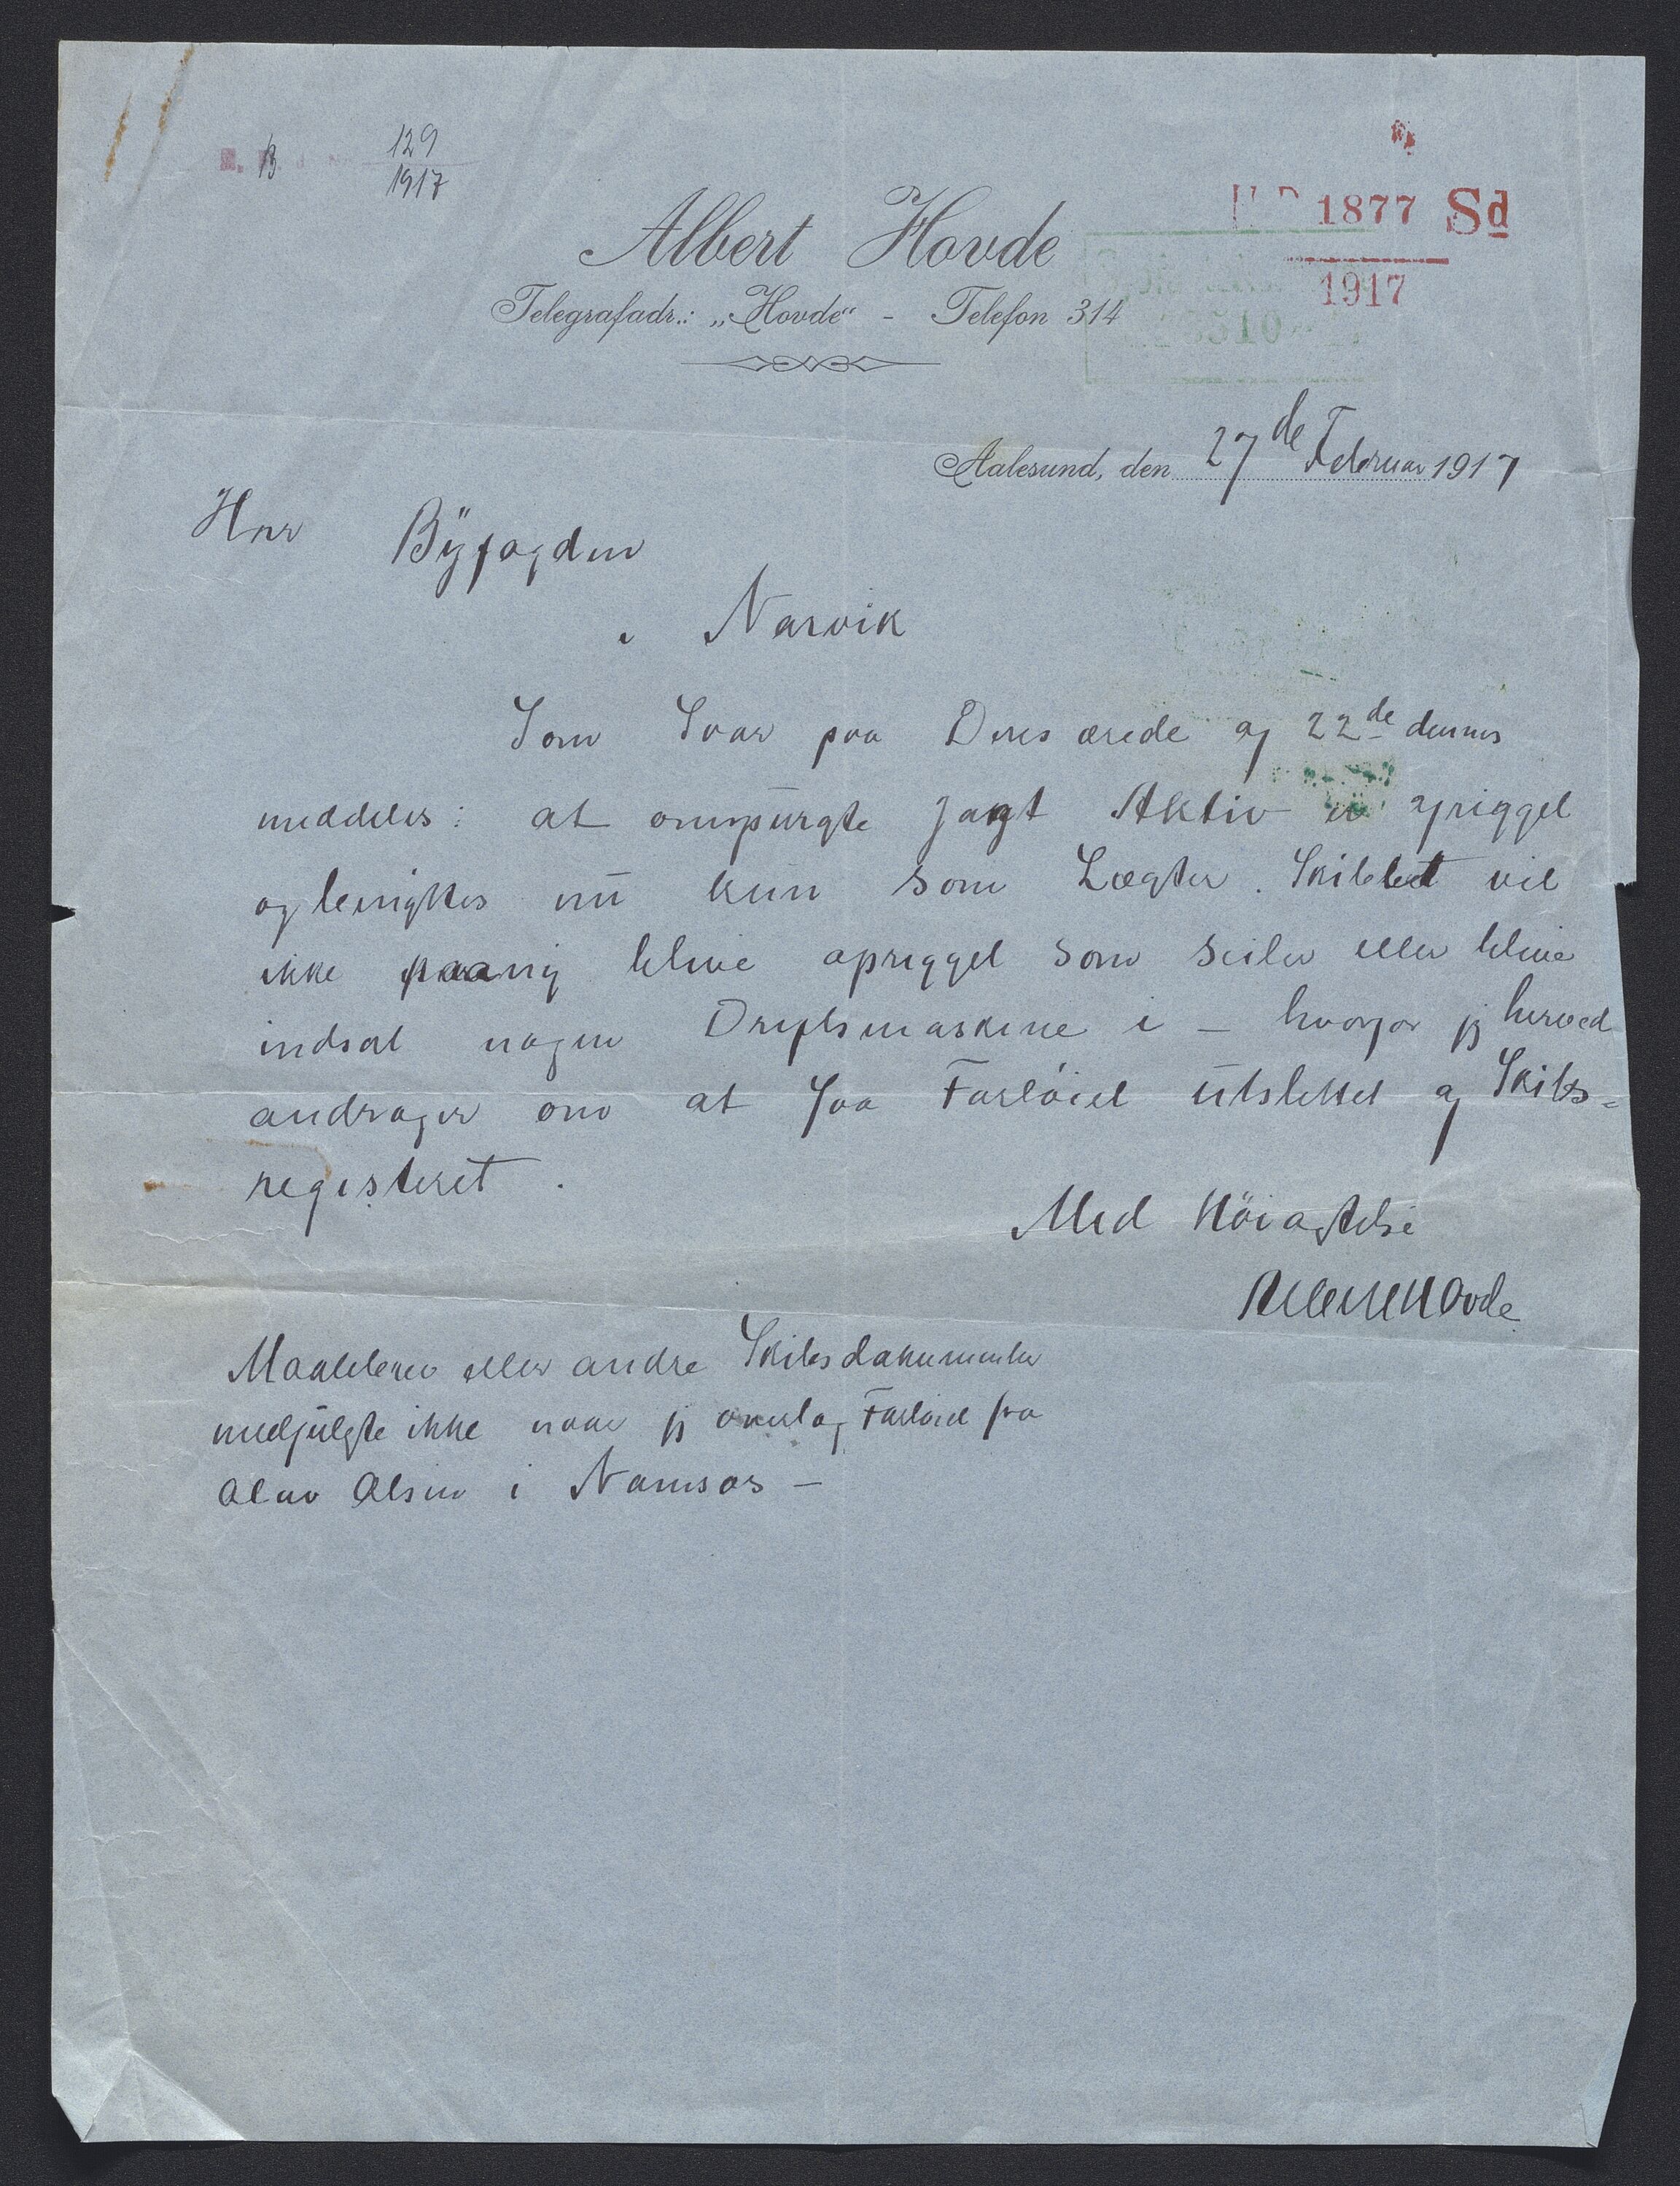 B 129
1917
1877 Sd
1917
Albert Hovde
Telegrafadr.: „Hovde“ - Telefon 314
8510
Aalesund, den 27de Februar 1917
Herr Byfogden
i Narvik
Som Svar paa Deres ærede af 22de dennes
meddeles: at omspurgte Jagt Aktiv er afrigget
og benyttes nu kun som Lægter. Skibet vil
ikke paany blive oprigget som Seiler eller blive
indsat nogen Driftsmaskine i – hvorfor jeg herved
andrager om at faa Fartöiet utslettet af Skibs-
registeret.
Med Höiagtelse
Albert Hovde
Maalebrev eller andre Skibsdokumenter
medfulgte ikke naar jeg overtog Fartöiet fra
Olav Olsen i Namsos –